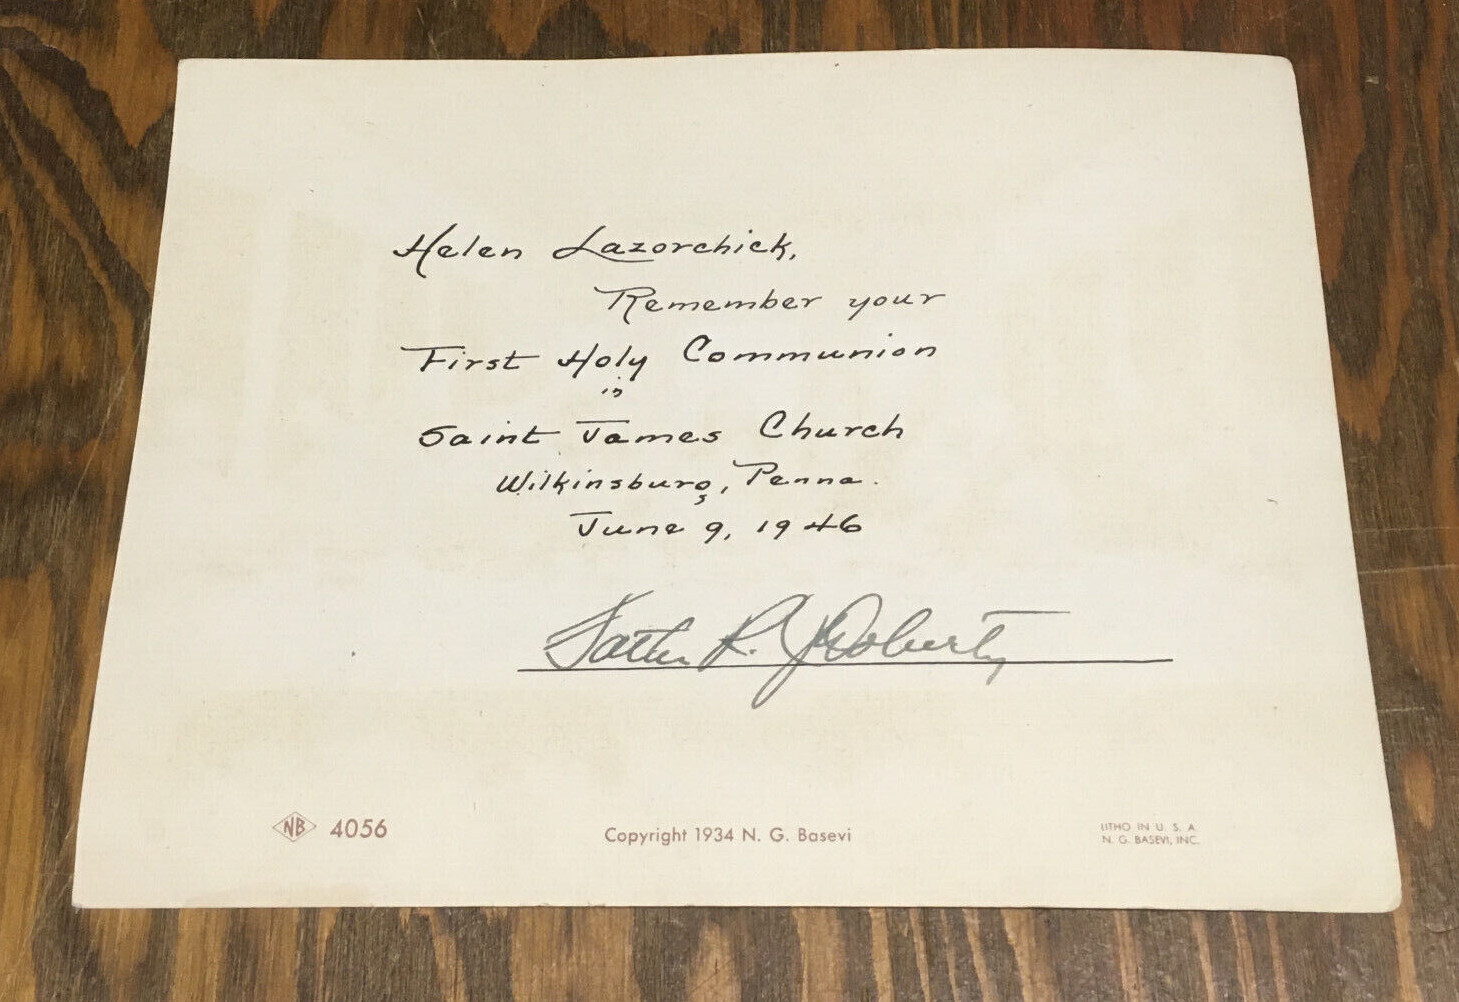 Helen Lazorchick,
Remember your
First Holy Communion
in
Saint James Church
Wilkinsburg, Penna.
June 9, 1946
Father R. J. Doherty
NB 4056
Copyright 1934 N. G. Basevi
LITHO IN U. S. A
N. G. BASEVI, INC.